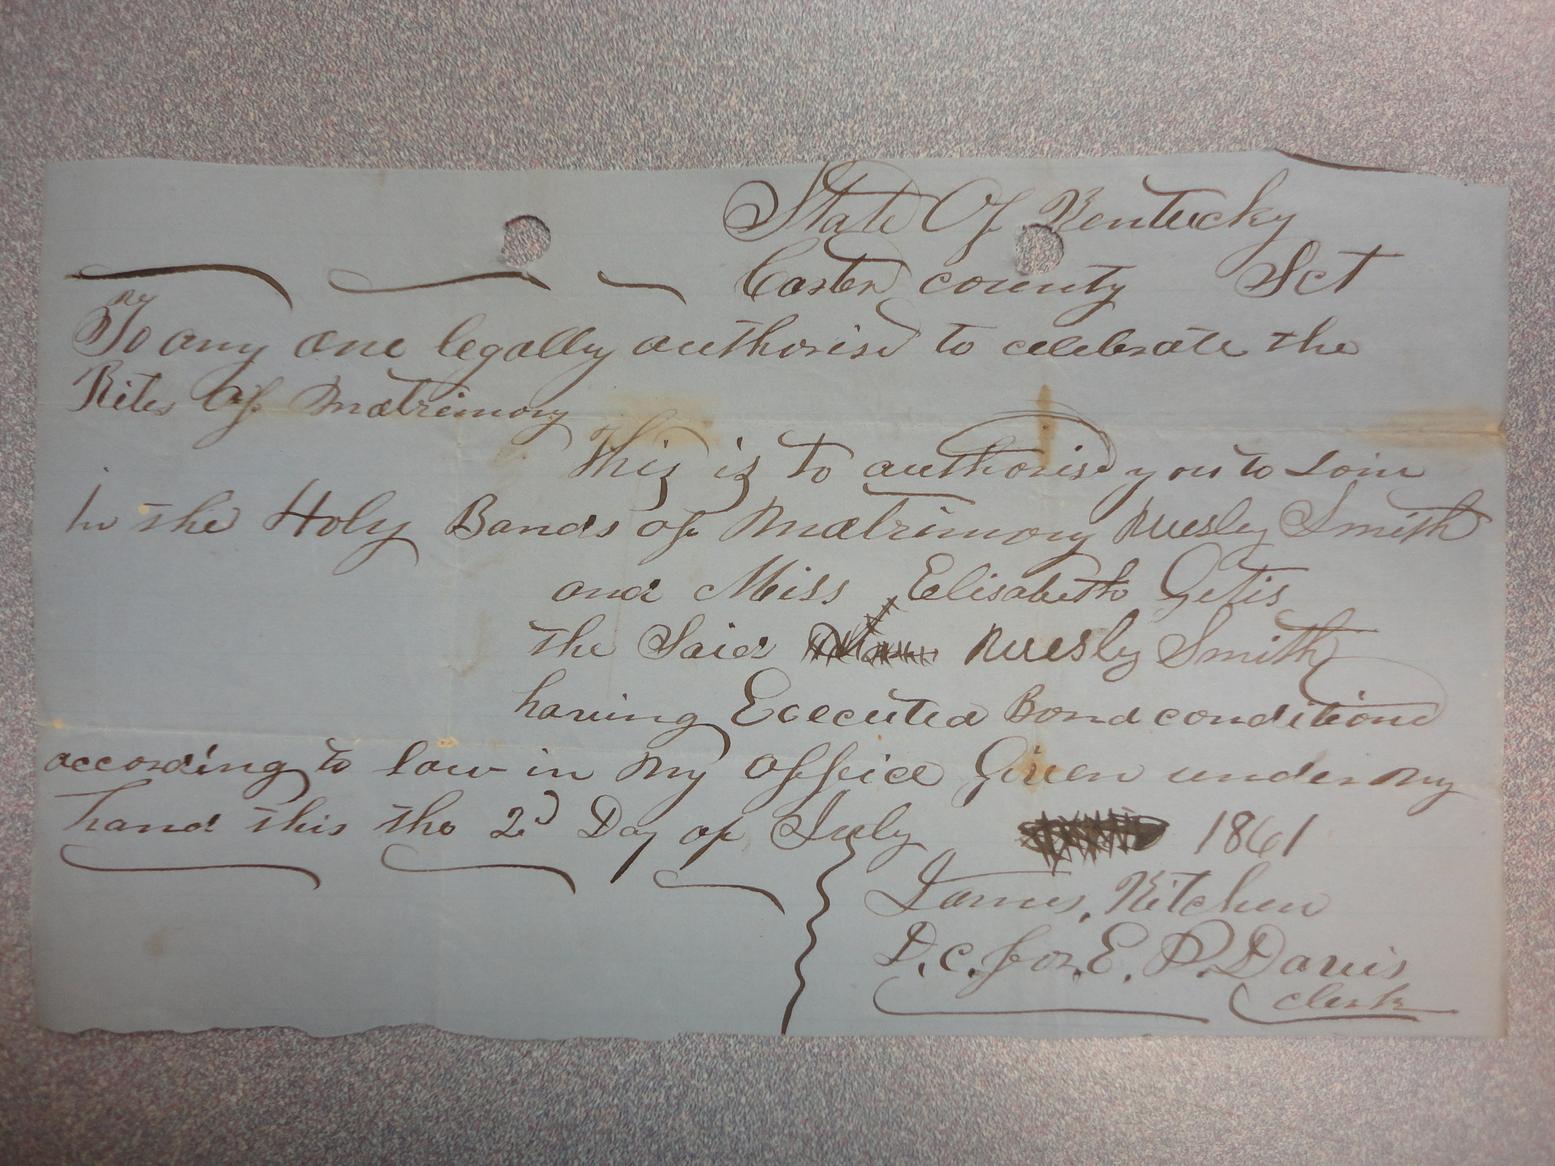 State Of Kentucky
Carter county Sct
To any one legally authorise to celebrate the
Rites Of Matrimony
This is to authorise you to Join
In the Holy Bands of Matrimony Wesly Smith
and Miss Elisabeth Getis
the Said Wesly Smith
having Executed Bond conditiond
according to law in my office Given under my
hand this the 2d Day of July 1861
James Kitchen
D.C. for E. P. Davis
clerk